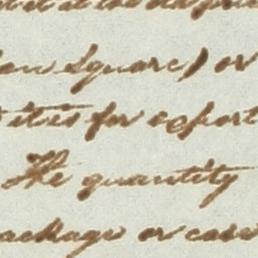 at the old
Square) or
it is for export
The quantity
package or case